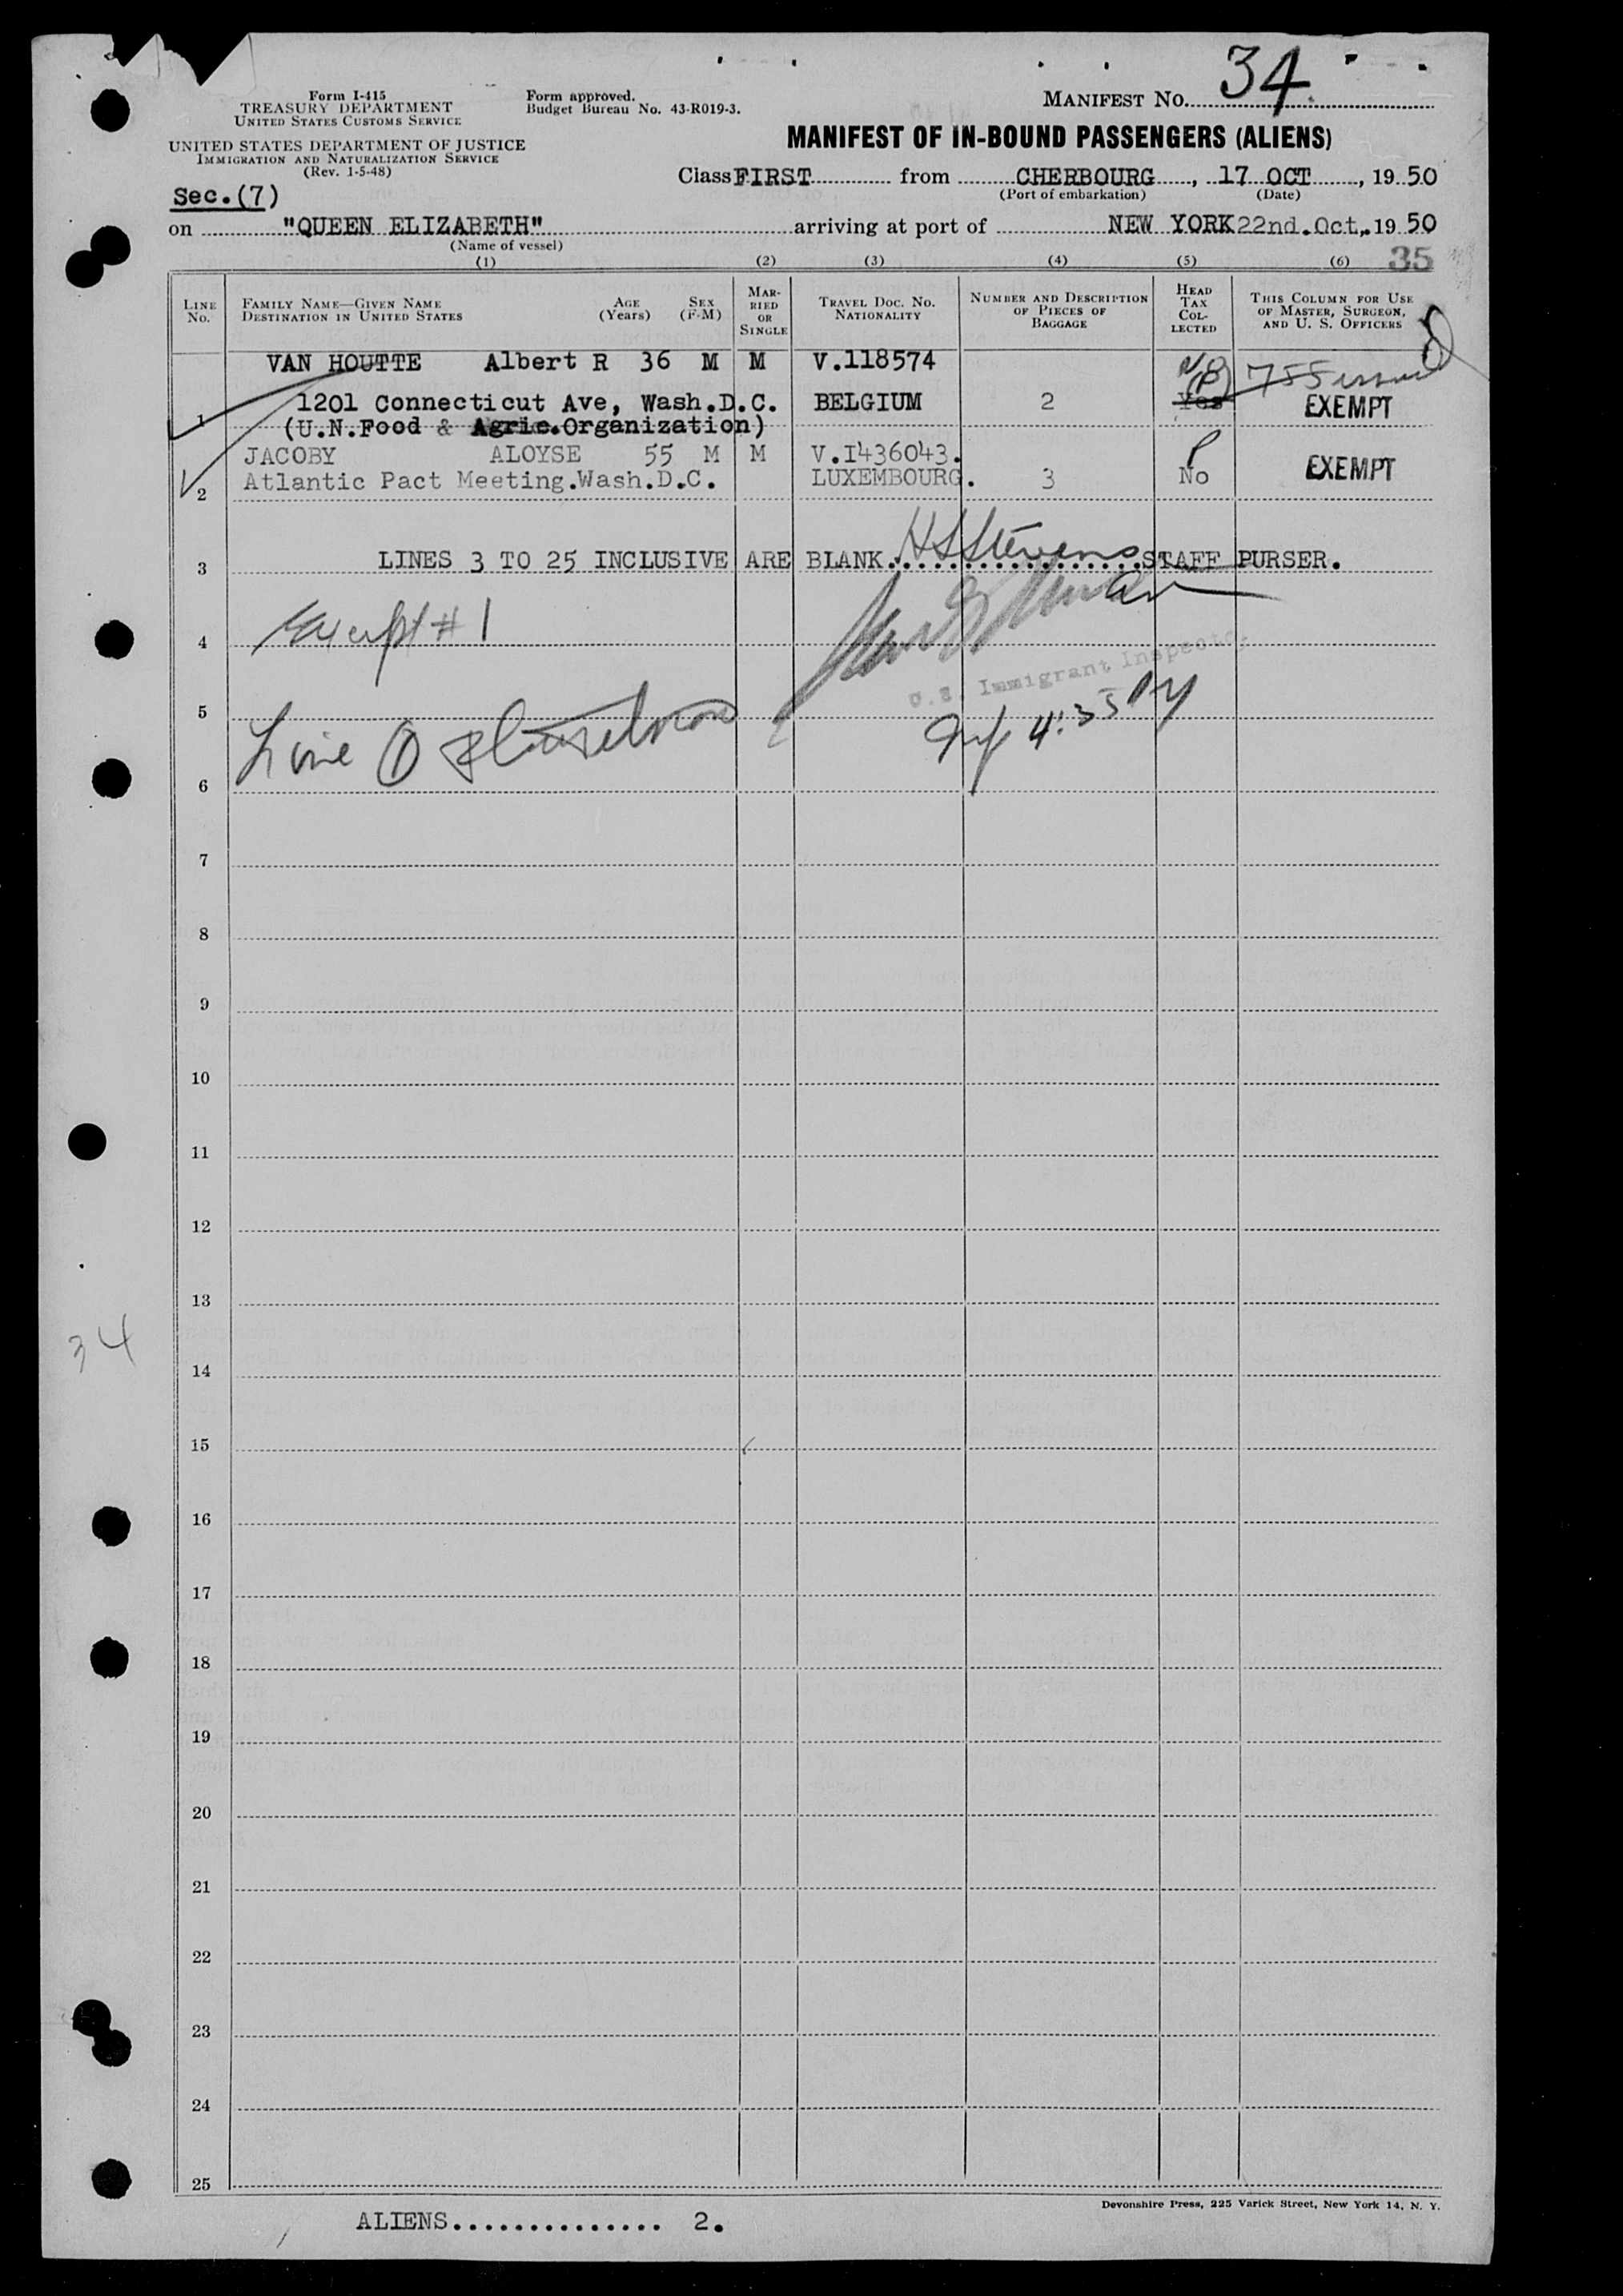 Form I-415
TREASURY DEPARTMENT
UNITED STATES CUSTOMS SERVICE
Form approved.
Budget Bureau No. 43-R019-3.
MANIFEST No. 34
UNITED STATES DEPARTMENT OF JUSTICE
IMMIGRATION AND NATURALIZATION SERVICE
(Rev. 1-5-48)
MANIFEST OF IN-BOUND PASSENGERS (ALIENS)
Class FIRST from CHERBOURG, 17 OCT, 19 50
(Port of embarkation) (Date)
Sec.(7)
on "QUEEN ELIZABETH" arriving at port of NEW YORK 22nd.Oct,.19 50
(Name of vessel)
(1) (2) (3) (4) (5) (6) 35
LINE No.
FAMILY NAME—GIVEN NAME
DESTINATION IN UNITED STATES
AGE (Years)
SEX (F-M)
MARRIED OR SINGLE
TRAVEL DOC. NO. NATIONALITY
NUMBER AND DESCRIPTION OF PIECES OF BAGGAGE
HEAD TAX COLLECTED
THIS COLUMN FOR USE OF MASTER, SURGEON, AND U. S. OFFICERS
VAN HOUTTE Albert R 36 M M V.118574
1 1201 Connecticut Ave, Wash.D.C. BELGIUM 2 Yes EXEMPT
(U.N.Food & Agric.Organization)
JACOBY ALOYSE 55 M M V.I436043.
2 Atlantic Pact Meeting.Wash.D.C. LUXEMBOURG. 3 No EXEMPT
3 LINES 3 TO 25 INCLUSIVE ARE BLANK. H S Stevens STAFF PURSER.
4 # 1
U.S. Immigrant Inspector
5
4:35 PM
Line 1
6
7
8
9
10
11
12
13
34
14
15
16
17
18
19
20
21
22
23
24
25
Devonshire Press, 225 Varick Street, New York 14, N. Y.
ALIENS............... 2.